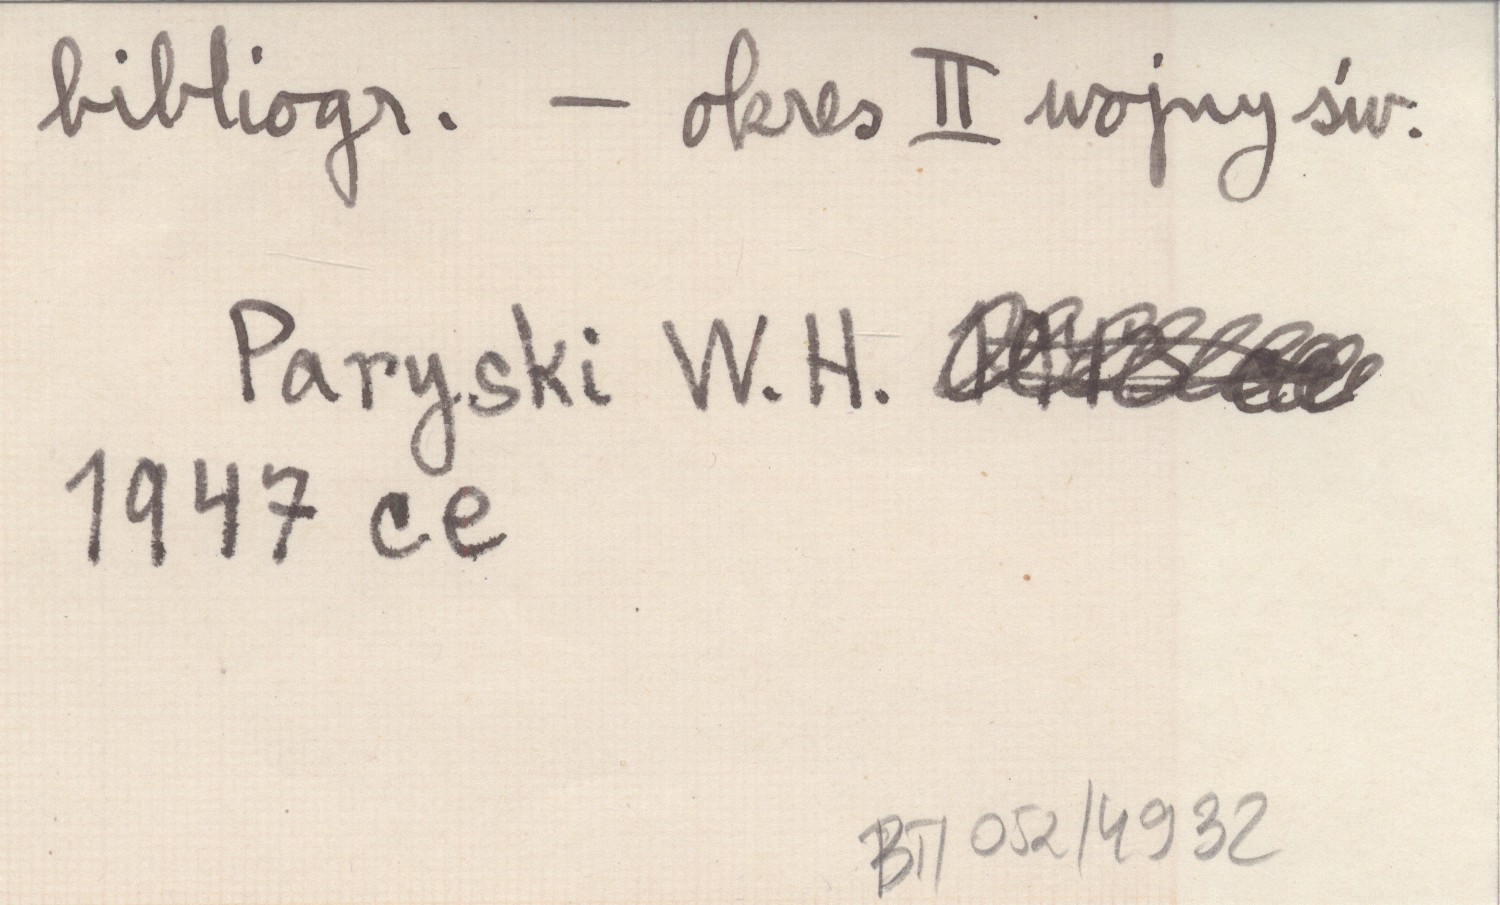 bibliogr. – okres II wojny św.
Paryski W.H.
1947 ce
052/4932